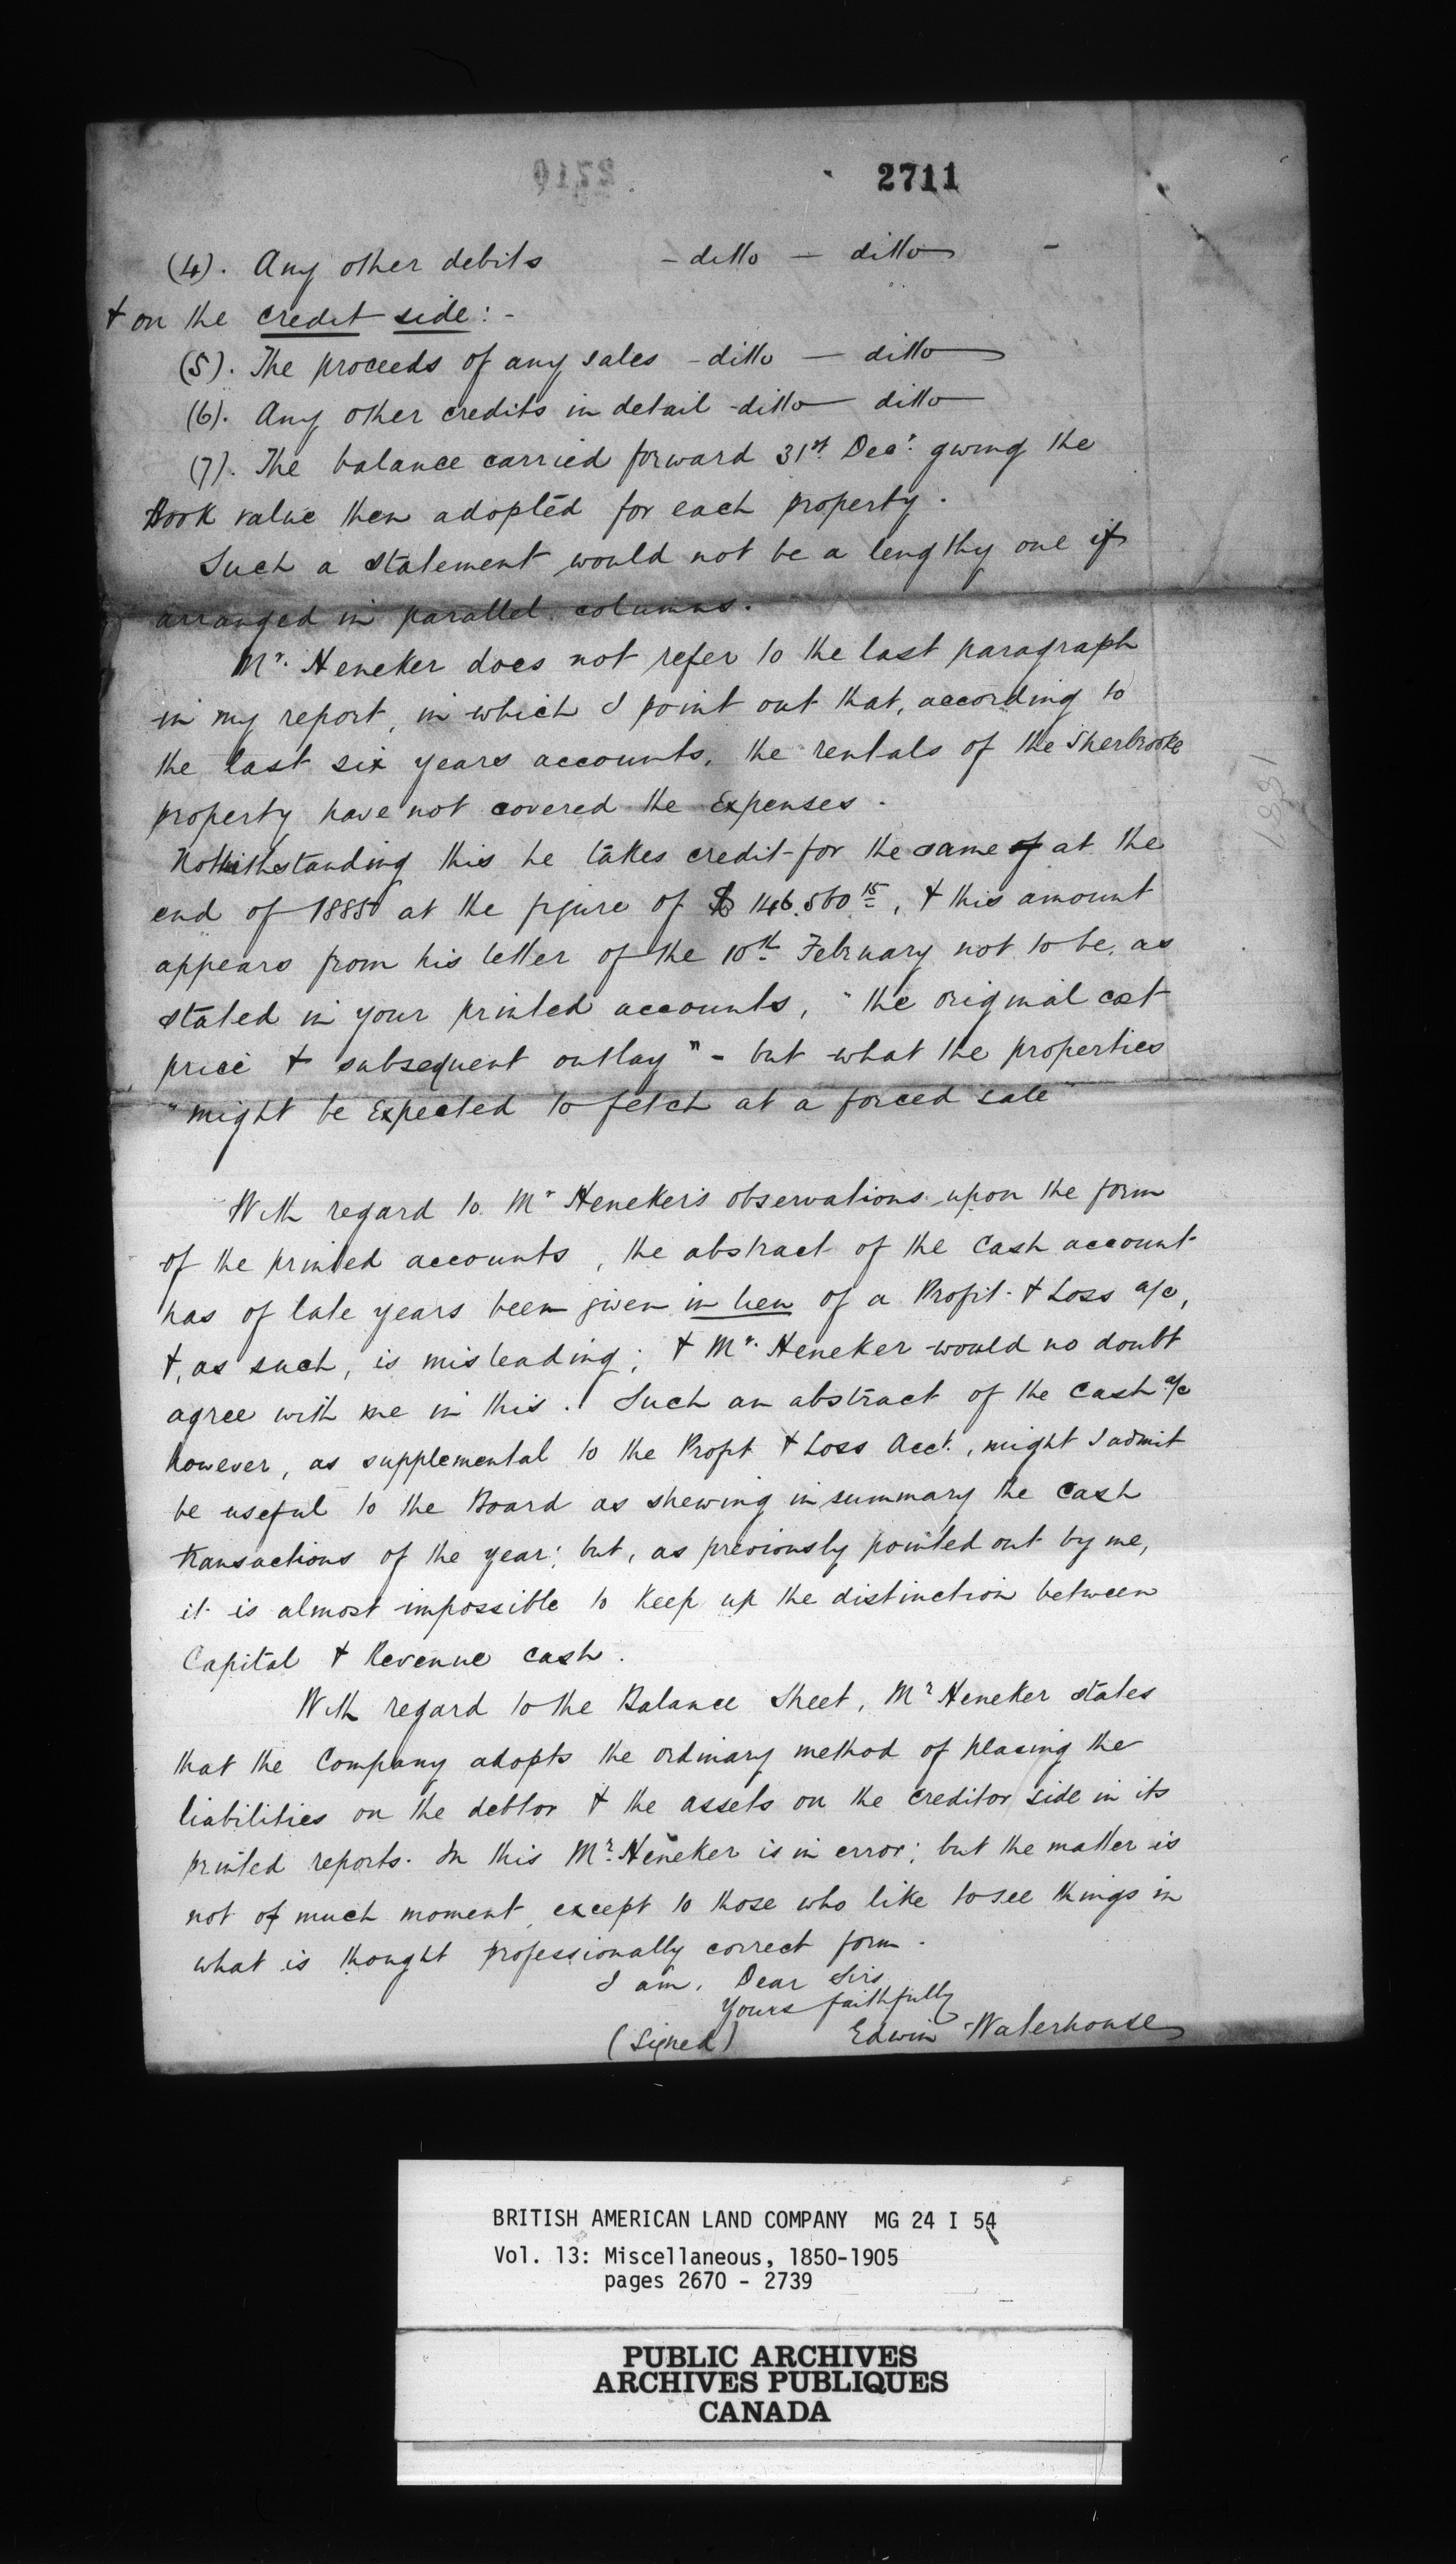 2711
(4). Any other debits - ditto - ditto -
& on the credit side: -
(5). The proceeds of any sales - ditto - ditto
(6). Any other credits in detail - ditto - ditto
(7). The balance carried forward 31st Decr: giving the
Book value then adopted for each property.
Such a statement would not be a lengthy one if
arranged in parallel columns.
Mr. Heneker does not refer to the last paragraph
in my report, in which I point out that, according to
the last six years accounts, the rentals of the Sherbrooke
property have not covered the Expenses.
Notwithstanding this he takes credit for the same at the
end of 1885 at the figure of $ 146.560 15, & this amount
appears from his letter of the 10th February not to be, as
stated in your printed accounts, "the original cost
price & subsequent outlay" - but what the properties
"might be Expected to fetch at a forced sale"
With regard to Mr Heneker's observations upon the form
of the printed accounts, the abstract of the Cash account
has of late years been given in lieu of a Profit & Loss a/c,
&, as such, is misleading; & Mr. Heneker would no doubt
agree with me in this. Such an abstract of the Cash a/c
however, as supplemental to the Profit & Loss Acct., might I admit
be useful to the Board as shewing in summary the Cash
transactions of the year; but, as previously pointed out by me,
it is almost impossible to keep up the distinction between
Capital & Revenue Cash.
With regard to the Balance Sheet, Mr Heneker states
that the Company adopts the ordinary method of placing the
liabilities on the debtor & the assets on the Creditor side in its
printed reports. In this Mr. Heneker is in error; but the matter is
not of much moment, except to those who like to see things in
what is thought professionally correct form.
I am, Dear Sirs
Yours faithfully
(Signed) Edwin Waterhouse
BRITISH AMERICAN LAND COMPANY MG 24 I 54
Vol. 13: Miscellaneous, 1850-1905
pages 2670 - 2739
PUBLIC ARCHIVES
ARCHIVES PUBLIQUES
CANADA